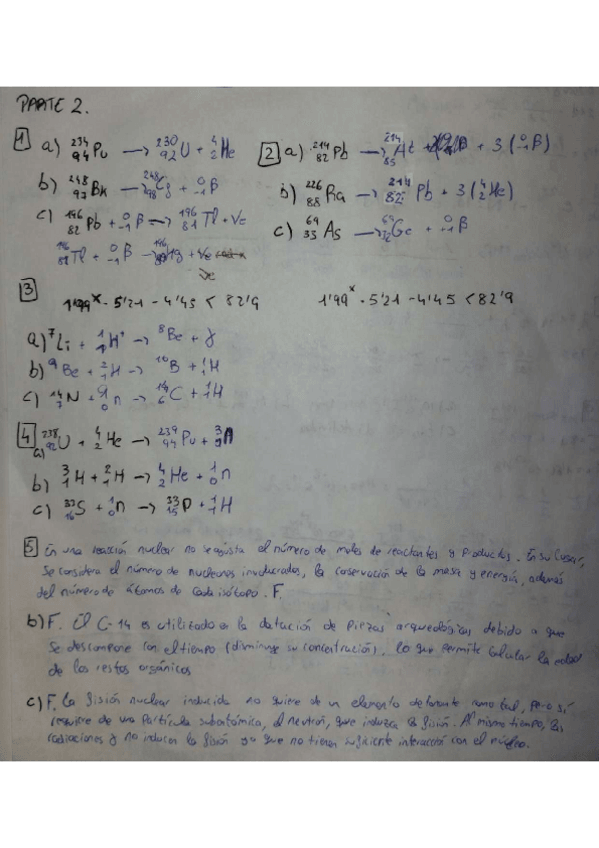 PARTE 2.
1 a) ²³⁴₉₄Pu → ²³⁰₉₂U + ⁴₂He
2 a) ²¹⁴₈₂Pb → ²¹⁴₈₅At + 3(⁰₋₁β)
b) ²⁴⁸₉₇Bk → ²⁴⁸₉₈Cf + ⁰₋₁β
b) ²²⁶₈₈Ra → ²¹⁴₈₂Pb + 3(⁴₂He)
c) ¹⁹⁶₈₂Pb + ⁰₋₁β → ¹⁹⁶₈₁Tl + νe
c) ⁶⁹₃₃As → ⁶⁹₃₂Ge + ⁰₋₁β
¹⁹⁶₈₁Tl + ⁰₋₁β → ¹⁹⁶₈₀Hg + νe
νe
3
1'99ˣ · 5'21 - 4'45 < 82'9
1'99ˣ · 5'21 - 4'45 < 82'9
a) ⁷Li + ¹₁H⁺ → ⁸Be + γ
b) ⁹Be + ²₁H → ¹⁰B + ¹₁H
c) ¹⁴₇N + ¹₀n → ¹⁴₆C + ¹₁H
4 a) ²³⁸₉₂U + ⁴₂He → ²³⁹₉₄Pu + 3 n
b) ³₁H + ²₁H → ⁴₂He + ¹₀n
c) ³³₁₆S + ¹₀n → ³³₁₅P + ¹₁H
5 En una reacción nuclear no se ajusta el número de moles de reactantes y productos. En su lugar,
se considera el número de nucleones involucrados, la coservación de la masa y energía, además
del número de átomos de cada isótopo. F.
b) F. El C-14 es utilizado en la datación de piezas arqueológicas debido a que
se descompone con el tiempo (disminuye su concentración). lo que permite calcular la edad
de los restos orgánicos
c) F. La fisión nuclear inducida no quiere de un elemento detonante como tal, pero sí
requiere de una partícula subatómica, el neutrón, que induzca la fisión. Al mismo tiempo, las
radiaciones γ no inducen la fisión ya que no tienen suficiente interacción con el núcleo.